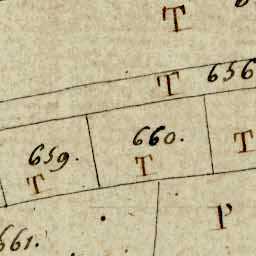 T
T 656
659. 660.
T T T
P
661.